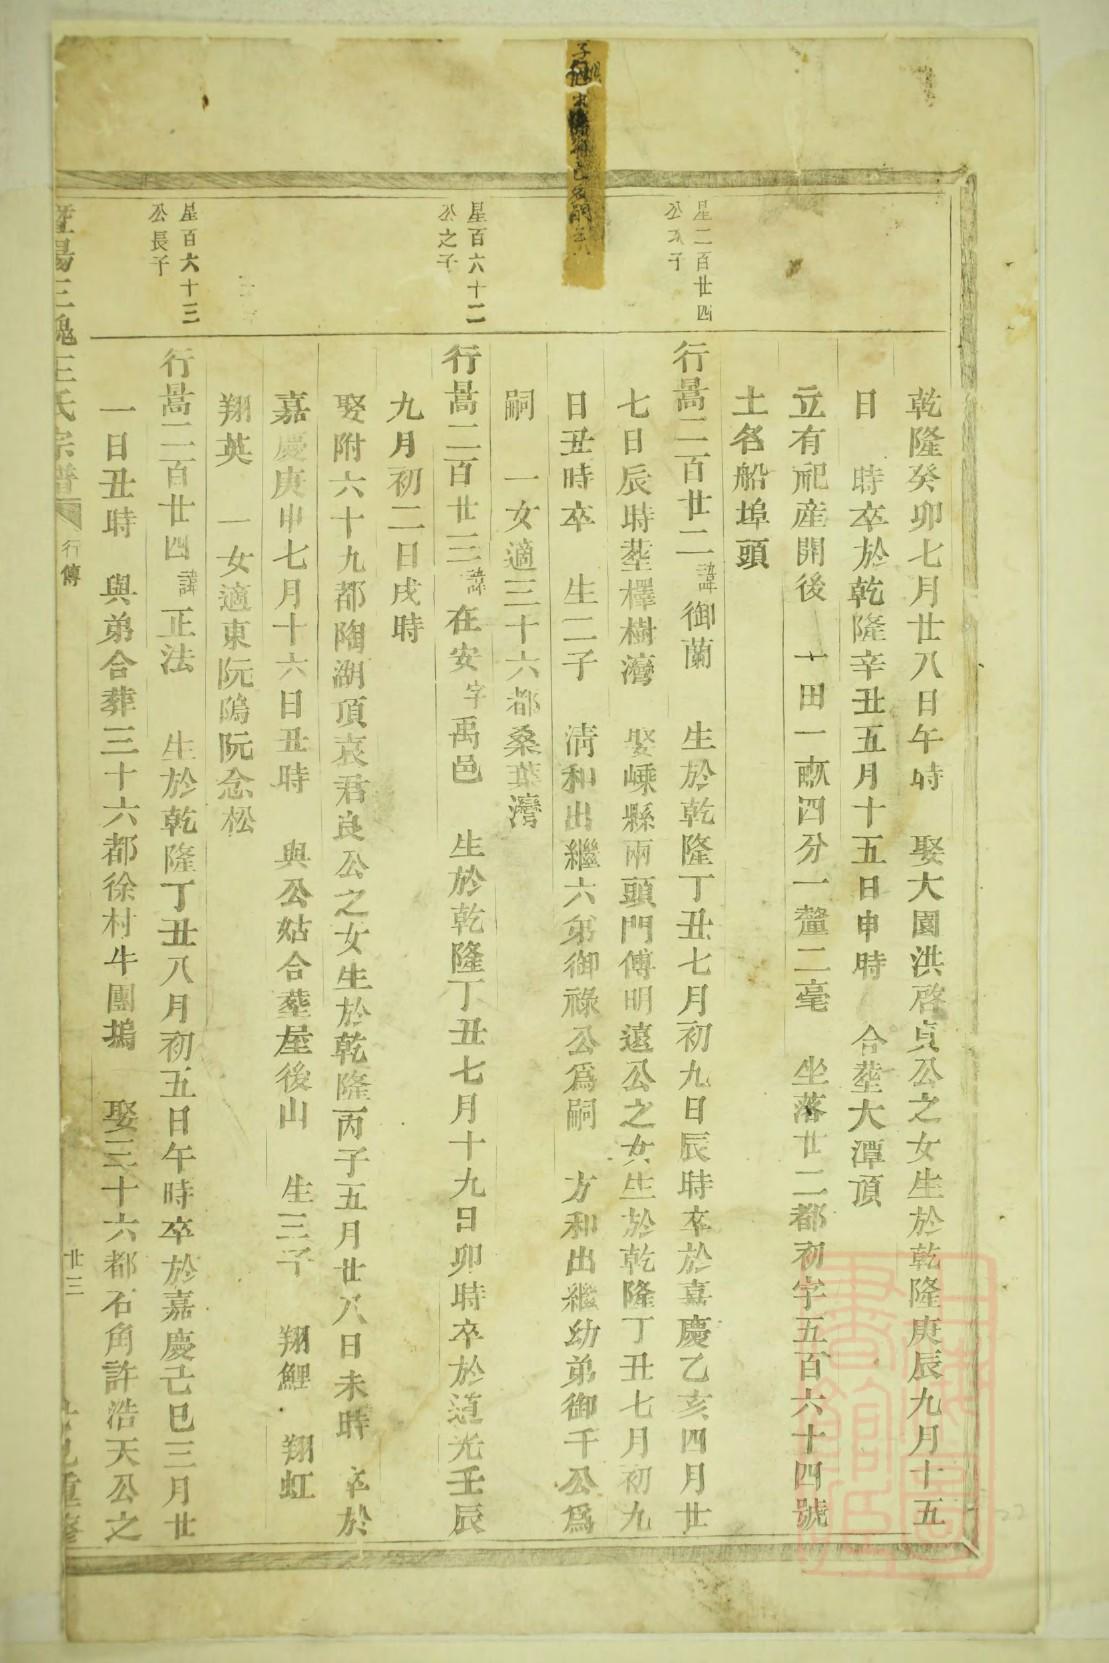 乾隆癸卯七月廿八日午時　娶大園洪啓貞公之女生於乾隆庚辰九月十五
日　時卒於乾隆辛丑五月十五日申時　合塟大潭頂
立有祀産開後　一田一畝四分一釐二毫　坐落廿二都初字五百六十四號
土名船埠頭
星二百廿四
公次子
行暠二百廿二諱御蘭　生於乾隆丁丑七月初九日辰時卒於嘉慶乙亥四月廿
七日辰時塟檡樹灣　娶嵊縣兩頭門傅明遠公之女生於乾隆丁丑七月初九
日丑時卒　生二子　清和出繼六弟御祿公爲嗣　方和出繼幼弟御千公爲
嗣　一女適三十六都桑葉灣
星百六十二
公之子
行暠二百廿三諱在安字禹邑　生於乾隆丁丑七月十九日卯時卒於道光壬辰
九月初二日戌時
娶附六十九都陶湖頂袁君良公之女生於乾隆丙子五月廿八日未時　卒於
嘉慶庚申七月十六日丑時　與公姑合塟屋後山　生三子　翔鯉　翔虹
翔英　一女適東阮隝阮念松
星百六十三
公長子
行暠二百廿四諱正法　生於乾隆丁丑八月初五日午時卒於嘉慶己巳三月廿
一日丑時　與弟合葬三十六都徐村牛團塢　娶三十六都石角許浩天公之
暨陽三槐王氏宗譜　行傳　廿三